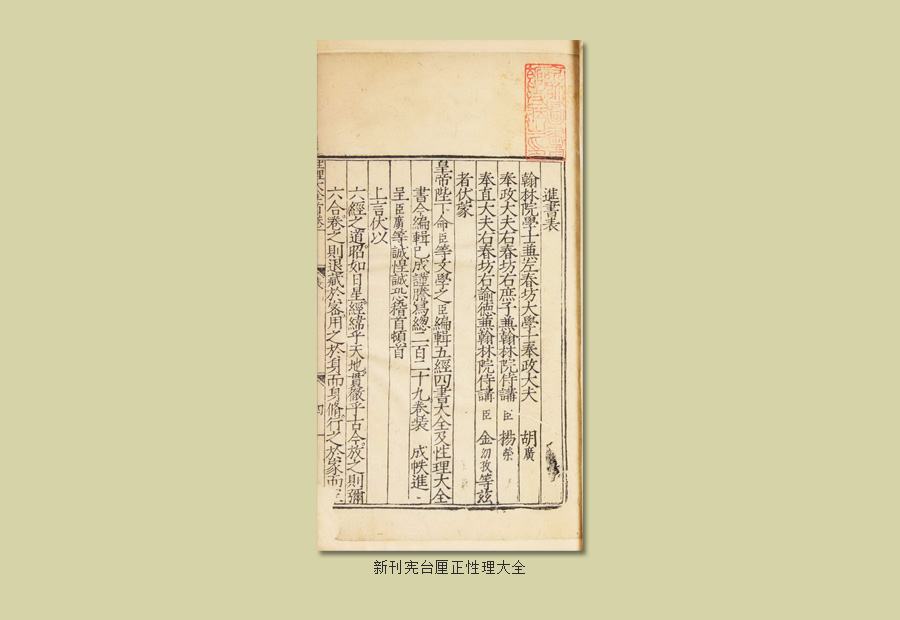 進書表
翰林院學士兼左春坊大學士奉政大夫 胡廣
奉政大夫右春坊右庶子兼翰林院侍講 臣 楊榮
奉直大夫右春坊右諭德兼翰林院侍講 臣 金幼孜等玆
者伏蒙
皇帝陛下命臣等文學之臣編輯五經四書大全及性理大全
書今編輯已成謹謄寫總二百二十九卷裝 成帙進
呈臣廣等誠惶誠恐稽首頓首
上言伏以
六經之道昭如日星經緯乎天地貫徹乎古今放之則彌
六合卷之則退藏於密用之於身而身脩行之於家而
性理大全首卷
表
新刊宪台厘正性理大全